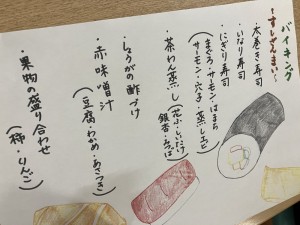 バイキング
~すしざんまい~
・太巻き寿司
・いなり寿司
・にぎり寿司
(まぐろ・サーモン・はまち
サーモン・穴子・蒸しエビ)
・茶わん蒸し(花ふ・しいたけ
銀杏・みつば)
・しょうがの酢づけ
・赤味噌汁
(豆腐・わかめ・あさつき)
・果物の盛り合わせ
(柿・りんご)